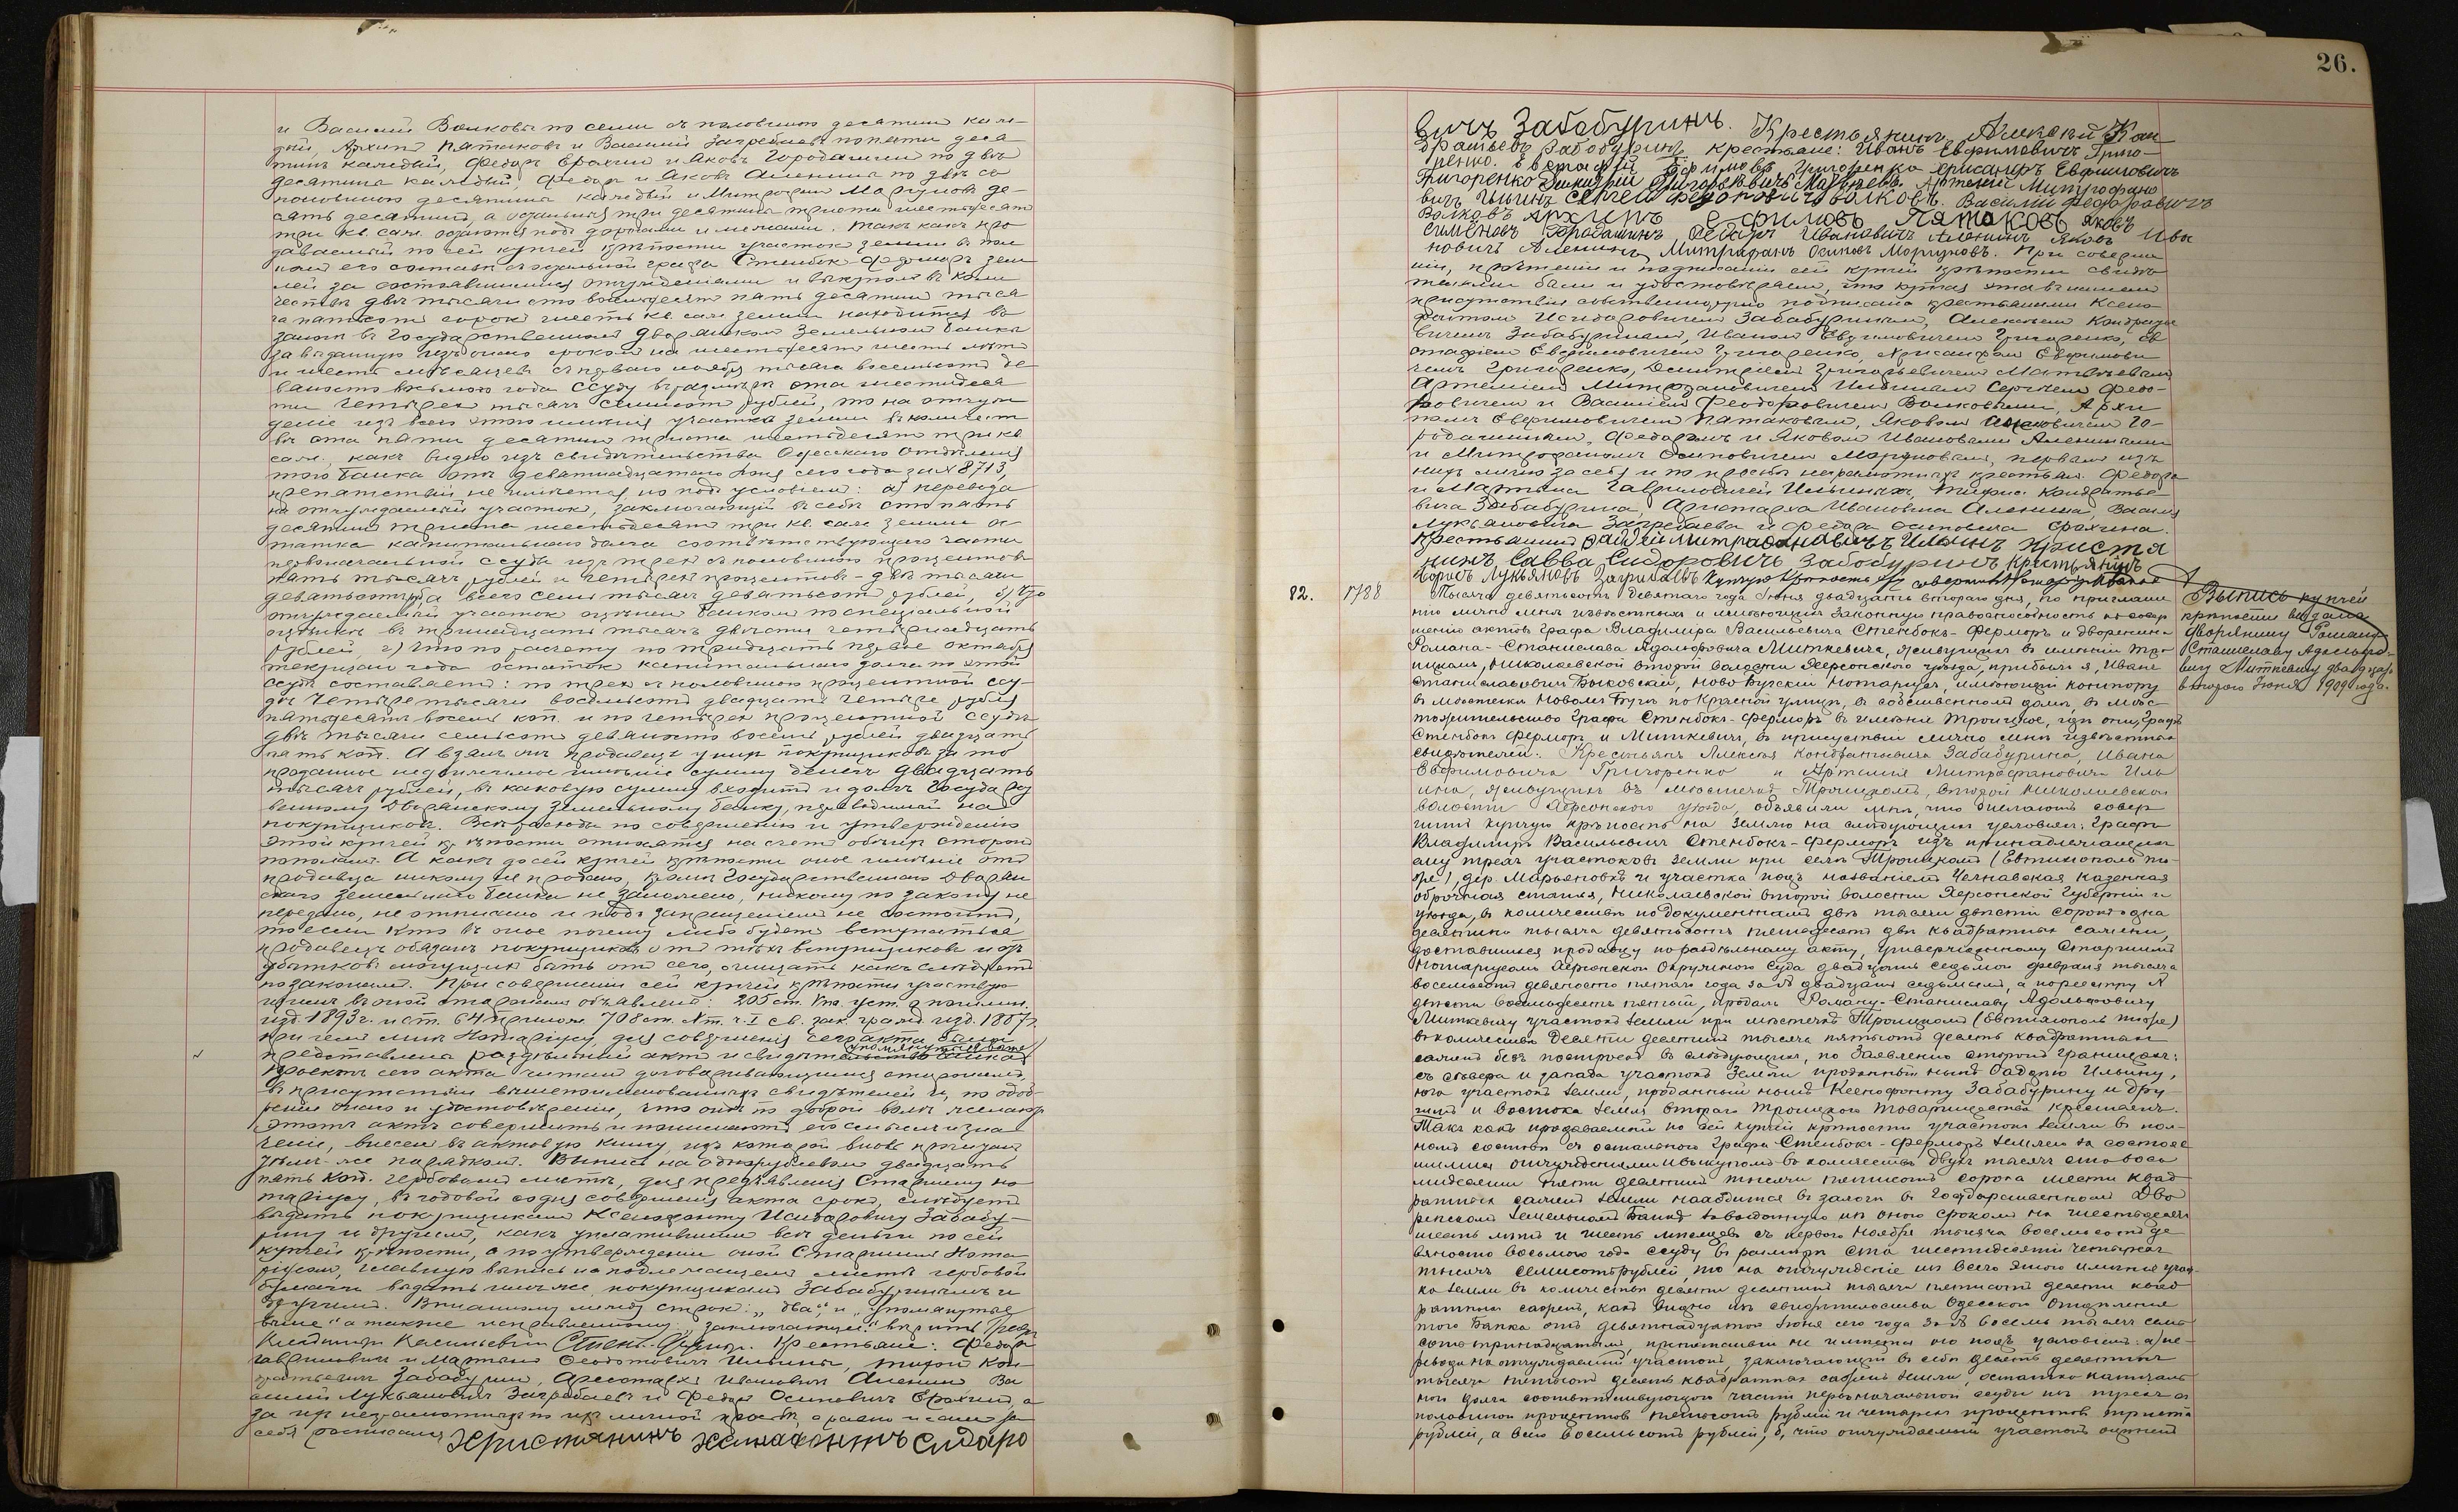 и Василий Волковы по семи съ половиною десятин каж-
дый, Архип Пятаков и Василий Загребаев по пяти деся
тин каждый, Федор Ерохин и Яков Городашин по две
десятины каждый, Федор и Яков Аленины по две со
половиною десятины каждый и Митрофан Моргунов де-
сять десятин, а остальныя три десятины триста шестьдесят
три кв. саж. отдаются под дорогами и межами. Такъ какъ про
даваемый по сей купчей крѣпости участок земли в пол
ном его составѣ съ остальной графа Стенбок-Ферморъ зем
лей за состоявшимися отчуждениями и выкупом в коли
чествѣ двѣ тысячи сто восемьдесят пять десятин тыся
ча пятьсот сорок шесть кв. саж. земли находится въ
залогѣ в Государственном Дворянском Земельном банкѣ
за выданную изъ онаго сроком на шестьдесят шесть лѣт
и шесть мѣсяцев съ перваго ноября тысяча восемьсот де
вяносто восьмого года ссуду въ размѣрѣ ста шестидеся
ти четырех тысяч семисот рублей, то на отчуж
деніе изъ всего этого имѣнія участка земли въ количест
вѣ ста пяти десятин триста шестьдесят три кв.
саж., какъ видно изъ свидѣтельства Одесскаго Отдѣленія
того Банка отъ девятнадцатаго Іюня сего года за № 8713,
препятствій не имѣется, но подъ условіем: а) перевода
на отчуждаемый участок, заключающій въ себѣ сто пять
десятин триста шестьдесят три кв. саж. земли ос
татка капитальнаго долга соотвѣтствующаго части
первоначальной ссуды изъ трех съ половиною процентов
пять тысяч рублей и четырех процентов - двѣ тысячи
девятьсотъ, а всего семь тысяч девятьсот рублей, б) что
отчуждаемый участок оцѣнен банком по спеціальной
оцѣнкѣ в тринадцать тысячъ двѣсти четырнадцать
рублей, г) что по расчету по тридцать первое октября
текущаго года остаток капитальнаго долга по этой
ссудѣ составляет: по трех съ половиною процентной ссу-
дѣ четыре тысячи восемьсот двадцать четыре рубля
пятьдесят восемь коп. и по четырех процентной ссудѣ
двѣ тысячи семьсот девяносто восемь рублей двадцать
пять коп. А взял онъ продавецъ у них покупщиковъ за то
проданное недвижимое имѣніе сумму денег двадцать
тысячъ рублей, въ каковую сумму входитъ и долгъ Государст
венному Дворянскому Земельному банку, переводимый на
покупщиков. Всѣ расходы по совершенію и утвержденію
этой купчей крѣпости относятся на счет обѣих сторон
пополам. А какъ до сей купчей крѣпости оное имѣніе отъ
продавца никому не продано, кромѣ Государственнаго Дворян
скаго Земельнаго банка не заложено, никому по закону не
передано, не отписано и подъ запрещеніем не состоит,
то если кто въ оное почему либо будет вступаться
продавецъ обязанъ покупщиков отъ тѣхъ вступщиковъ и отъ
убытков могущих быть отъ сего, очищать какъ слѣдует
по законам. При совершении сей купчей крѣпости участвую
щимъ въ оной сторонам объявлены: 205 ст. V т. уст. о пошлин.
изд. 1893 г. и ст. 64 прилож. 708 ст. X т. ч. I св. зак. гражд. изд. 1887 г.
При чем мнѣ Нотаріусу для совершенія сего акта были
представлены раздѣльный акт и свидѣтельство банка упомянутые выше
Проектъ сего акта читан договаривающимся сторонам
въ присутствіи вышепоименованных свидѣтелей и, по одоб-
реніи онаго и удостовѣреніи, что они по доброй волѣ желают
этотъ актъ совершить и понимают его смысл и зна
ченіе, внесен въ актовую книгу, изъ которой вновь прочитан
тѣм-же порядком. Выпись на однорублевом двадцать
пять коп. гербовом листѣ, для предъявленія Старшему но
таріусу, въ годовой со дня совершенія акта срок, слѣдует
выдать покупщикам Ксенофонту Исидоровичу Забабу-
рину и другим, какъ уплатившим всѣ деньги по сей
купчей крѣпости, а по утверждении оной Старшим Нота
ріусом, главную выпись на подлежащем листѣ гербовой
бумаги выдать им же, покупщикам Забабуриным и
другим. Вписанному между строк: „два", и „упомянутые
выше" а также исправленному: „заключающій" вѣрить. Граф
Владимир Васильевич Стенб.-Фермор. Крестьяне: Федор
Гавриловичъ и Мартынъ Гавриловичъ Ильины, Тифон Кон
дратьевич Забабурин, Аристархъ Иванович Аленин, Ва
силий Лукьянович Загребаевъ и Федор Осипович Ерохин, а
за их неграмотных по их личной просьбѣ, а равно и сам за
себя расписался Христянинъ Ксенафонтъ Сидаро
26.
вичъ Забабуринъ. Крестьянинъ Алексѣй Кан
дратьевъ Забобуринъ Крестьяне: Иванъ Ефимовичъ Григо-
ренко. Евстафій Ефимовъ Григоренко Хрисанфъ Евфимовичъ
Григоренко Димитрий Григорьевичъ Матвѣевъ. Артемий Митрофано
вичъ Ильинъ Сергей Федоровичъ Волковъ. Василий Федоровичъ
Волковъ Архипъ Ефимовъ Пятаковъ Яковъ
Сименовъ Градашинъ Федаръ Ивановичъ Аленинъ Яковъ Ива
новичъ Аленинъ Митрафанъ Осиповъ Моргуновъ. При соверше
ніи, прочтеніи и подписании сей купчей крѣпости свидѣ
телями были и удостовѣряем, что купчая эта въ нашем
присутствіи собственноручно подписана крестьянами Ксено
фонтом Исидоровичем Забабуриным, Алексѣем Кондратье
вичем Забабуриным, Иваном Евфимовичем Григоренко, Ев
стафіем Евфимовичем Григоренко, Хрисанфом Евфимови
чем Григоренко, Димитріем Григорьевичем Матвѣевым,
Артеміем Митрофановичем Ильиным, Сергѣем Федо-
ровичем и Василіем Феодоровичем Волковыми, Архи
пом Евфимовичем Пятаковым, Яковом Го-
родашиным, Федором и Яковом Ивановыми Алениными
и Митрофаном Осиповичем Моргуновым, первым изъ
них лично за себя и по просьбѣ неграмотных крестьян Федора
и Мартына Гавриловичей Ильиных, Тифона Кондратье-
вича Забабурина, Аристарха Ивановича Аленина, Василія
Лукьяновича Загребаева и Федора Осиповича Ерохина.
Крестьянин Фадѣй Митрафановичъ Ильинъ Кристя
нинъ Савва Сидоровичъ Забобуринъ Крестьянинъ
Борисъ Лукьяновъ Заграбаевъ Купчую крѣпость эту совершил Нотаріус Иванъ
82. 1788 Тысяча девятьсотъ девятаго года Іюня двадцать втораго дня, по приглаше
нію лично мнѣ извѣстныхъ и имѣющихъ законную правоспособность къ совер
шенію актовъ Графа Владиміра Васильевича Стенбокъ-Ферморъ и дворянина
Романа-Станислава Адольфовича Миткевича, живущихъ въ имѣніи Тро-
ицкомъ, Николаевской второй волости Херсонскаго уѣзда, прибылъ я, Иванъ
Станиславович Быковскій, Ново Бугскій нотаріусъ, имѣющій контору
въ мѣстечкѣ Новомъ Бугѣ по Красной улицѣ, въ собственномъ домѣ, въ мѣс
тожительство Графа Стенбокъ-Ферморъ въ имѣніе Троицкое, гдѣ они, Графъ
Стенбокъ Ферморъ и Миткевичъ, въ присутствіи лично мнѣ извѣстныхъ
свидѣтелей: Крестьянъ Алексѣя Кондратьевича Забабурина, Ивана
Евфимовича Григоренко и Артемія Митрофановича Иль
ина, живущихъ въ мѣстечкѣ Троицкомъ, второй Николаевской
волости Херсонскаго уѣзда, объявили мнѣ, что желаютъ совер
шить купчую крѣпость на землю на слѣдующихъ условіяхъ: Графъ
Владимиръ Васильевичъ Стенбокъ-Ферморъ изъ принадлежащихъ
ему трехъ участковъ земли при селѣ Троицкомъ (Евтинополь то-
же), дер. Марьяновкѣ и участка подъ названіемъ Казенная
оброчная статья, Николаевской второй волости Херсонской губерніи и
уѣзда, въ количествѣ по документамъ двѣ тысячи двѣсти сорокъ одна
десятина тысяча девятьсотъ пятьдесятъ двѣ квадратныхъ сажени,
доставшихся продавцу по раздѣльному акту, утвержденному Старшимъ
Нотаріусомъ Херсонскаго Окружнаго Суда двадцать седьмого февраля тысяча
восемьсотъ девяносто пятаго года за № двадцать седьмымъ, а по реестру №
двѣсти восемьдесятъ пятый, продалъ Роману-Станиславу Адольфовичу
Миткевичу участокъ земли при мѣстечкѣ Троицкомъ (Евтинополь тоже)
въ количествѣ десяти десятинъ тысяча пятьсотъ десять квадратныхъ
саженъ безъ построекъ въ слѣдующихъ, по заявленію сторонъ границахъ:
съ сѣвера и запада участокъ земли проданный нынѣ Фадѣю Ильину,
юга участокъ земли, проданный нынѣ Ксенофонту Забабурину и дру
гимъ и востока земля втораго Троицкаго товарищества крестьянъ.
Такъ какъ продаваемый по сей купчей крѣпости участокъ земли въ пол-
номъ составѣ съ остальною Графа Стенбокъ-Ферморъ землею за состояв
шимися отчужденіями и выкупомъ въ количествѣ двухъ тысячъ сто вось
мидесяти пяти десятинъ тысячи пятисотъ сорока шести квад
ратныхъ саженъ земли находится въ залогѣ въ Государственномъ Дво
рянскомъ Земельномъ Банкѣ за выданную изъ онаго срокомъ на шестьдесятъ
шесть лѣтъ и шесть мѣсяцевъ съ перваго Ноября тысяча восемьсотъ де
вяносто восьмого года ссуду въ размѣрѣ ста шестидесяти четырехъ
тысячъ семисотъ рублей, то на отчужденіе изъ всего этого имѣнія участ-
ка земли въ количествѣ десяти десятинъ тысяча пятисотъ десяти квад
ратныхъ саженъ, какъ видно изъ свидѣтельства Одесскаго Отдѣленія
того Банка отъ девятнадцатаго Іюня сего года за № восемь тысячъ семь
сотъ тринадцатымъ, препятствій не имѣется но подъ условіемъ: а) пе-
ревода на отчуждаемый участокъ, заключающій въ себѣ десять десятинъ
тысяча пятьсотъ десять квадратныхъ саженъ земли, остатка капиталь
наго долга соотвѣтствующаго части первоначальной ссуды изъ трехъ съ
половиною процентовъ пятьсотъ рублей и четырехъ процентовъ триста
рублей, а всего восемьсотъ рублей, б) что отчуждаемый участокъ оцѣненъ
Выпись купчей
крѣпости выдана
дворянину Роману
Станиславу Адольфо-
вичу Миткевичу двадцать
второго Іюня 1909 года.